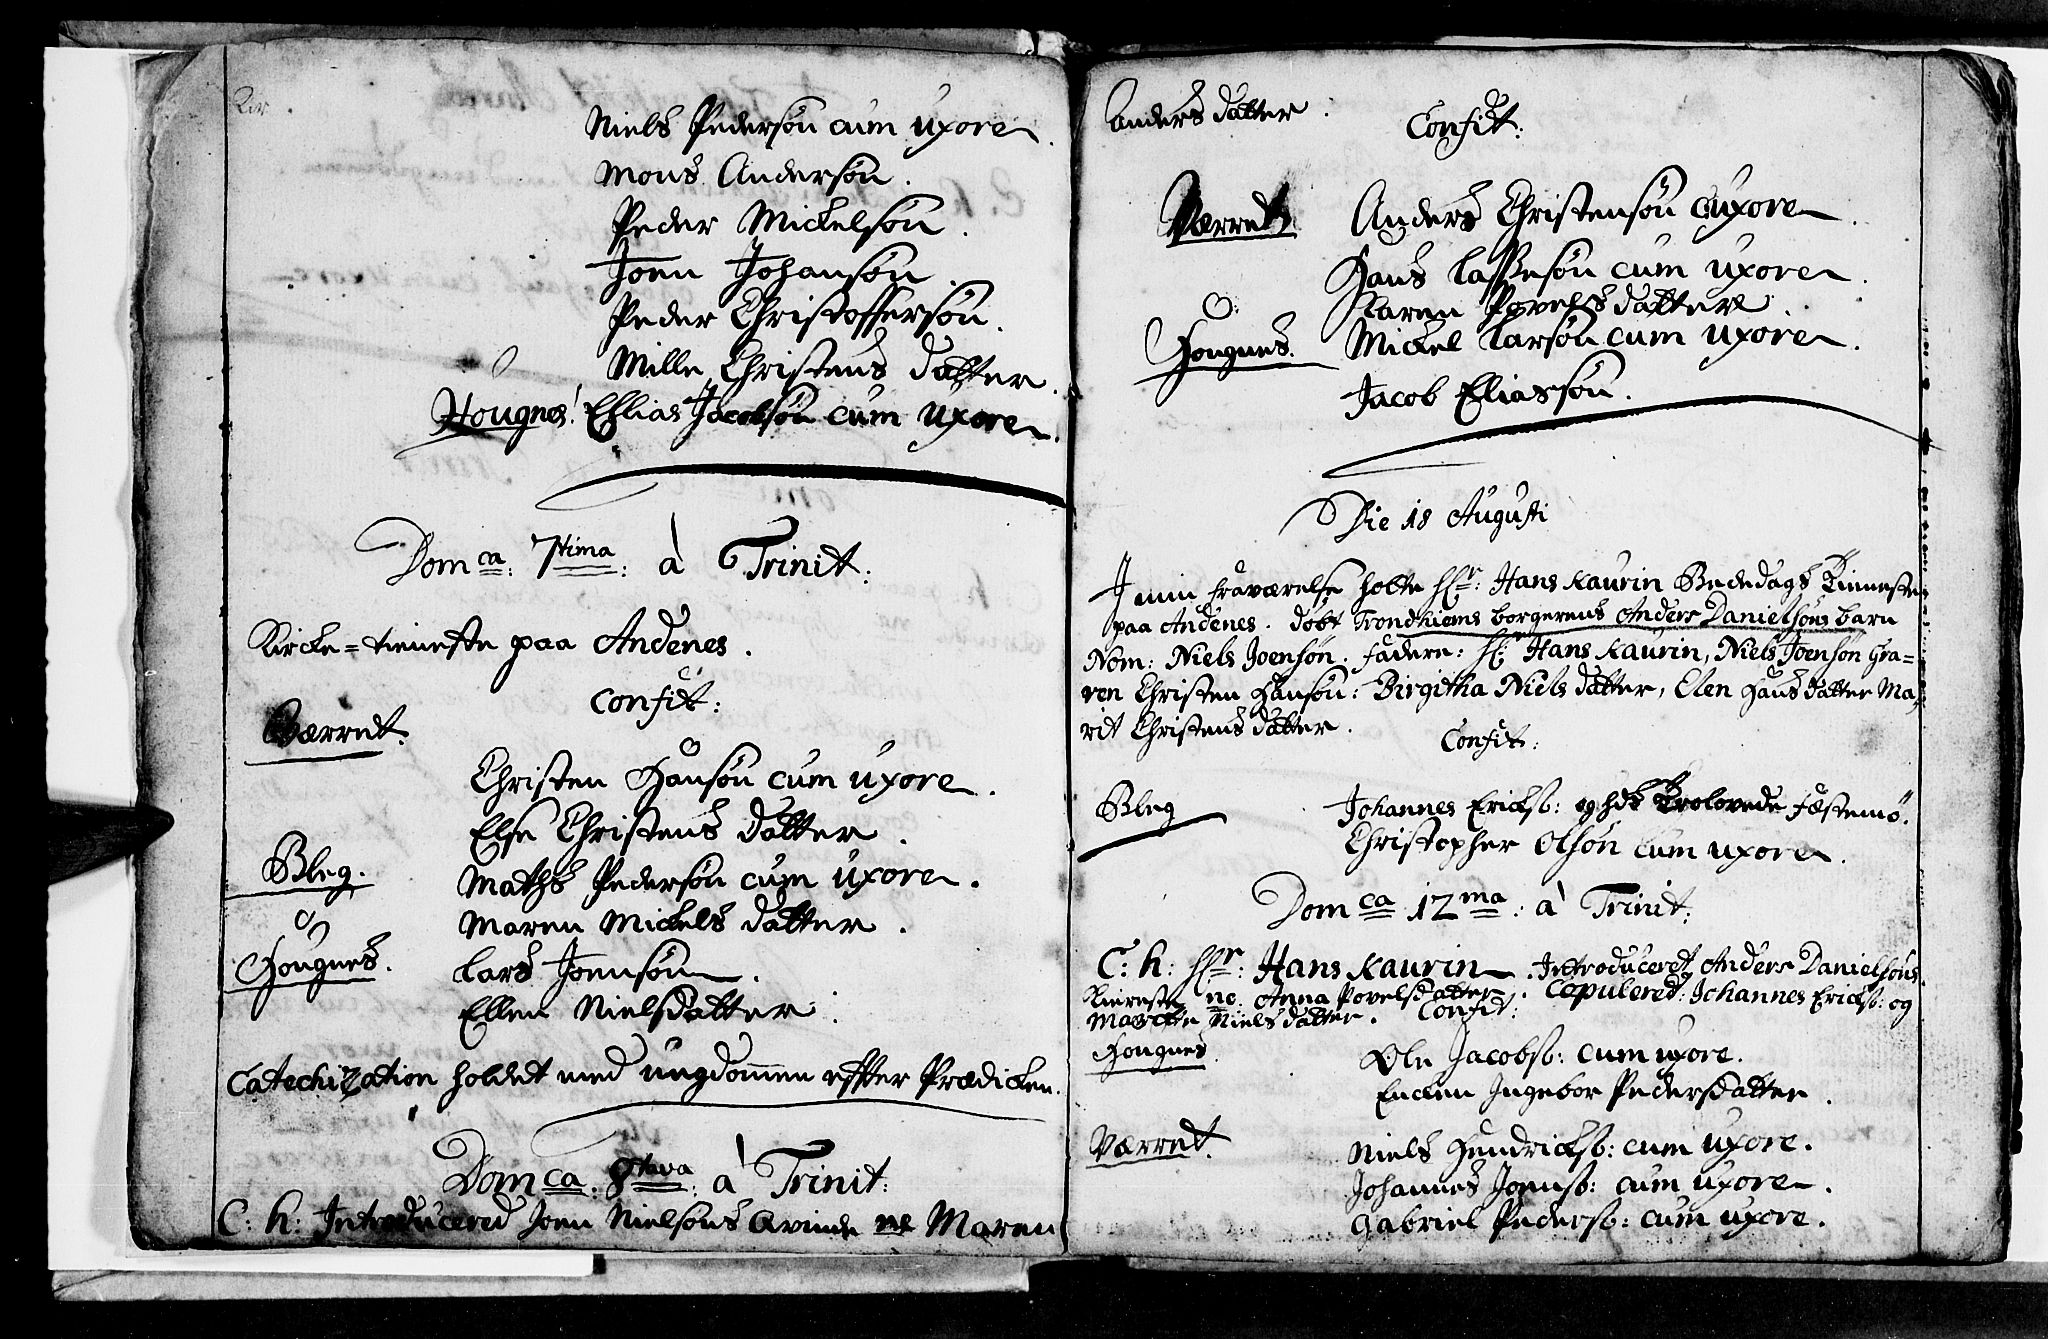 Niels Pedersøn cum uxore.
Mons Andersøn.
Peder Mickelsøn.
Joen Johansøn.
Peder Christoffersøn.
Mille Christens datter.
Hougnes: Ehlias Jacobsøn cum uxore.
Dom ca: 7tima: à Trinit:
Kircke-tieneste paa Andenes.
Confit:
Værret.
Christen Hansøn cum uxore.
Else Christens datter.
Bleg. Maths Pedersøn cum uxore.
Maren Mickels datter.
Hougnes. Lars Joensøn.
Ellen Nielsdatter.
Catechization holdet med ungdommen effter Prædicken.
Dom ca: 8tava: à Trinit:
C: h: Introducered Joen Nielsøns Qvinde no Maren
Anders datter.
Confit:
Værret Anders Christensøn cuxore.
Hans Lassesøn cum uxore.
Maren Povels datter.
Hougnes. Mickel Larsøn cum uxore.
Jacob Eliassøn.
Die 18 Augusti
I min fraværelse holte Hr: Hans Kaurin Bededags tieneste
paa Andenes. døbt Trondhiems borgerens Anders Danielsøns barn
Nom: Niels Joensøn. Fadere: Hr: Hans Kaurin, Niels Joensøn Gra=
ven Christen Hansøn: Birgitha Niels datter, Elen Hans datter Ma=
rit Christens datter.
Confit:
Bleg Johannes Ericksø: og hds Trolovede Fæstemø.
Christopher Olsøn cum uxore.
Dom ca 12 ma: à Trinit:
C: h: Hr: Hans Kaurin. Introduceret Anders Danielsøns
Kiereste no: Anna Povelsdatter. Copuleret: Johannes Ericksø: og
Marette Niels datter. Confit:
Hougnes. Ole Jacobsø: cum uxore.
Encken Ingebor Pedersdatter.
Værret. Niels Hendricksø: cum uxore.
Johannes Joensø: cum uxore.
Gabriel Pedersø: cum uxore.